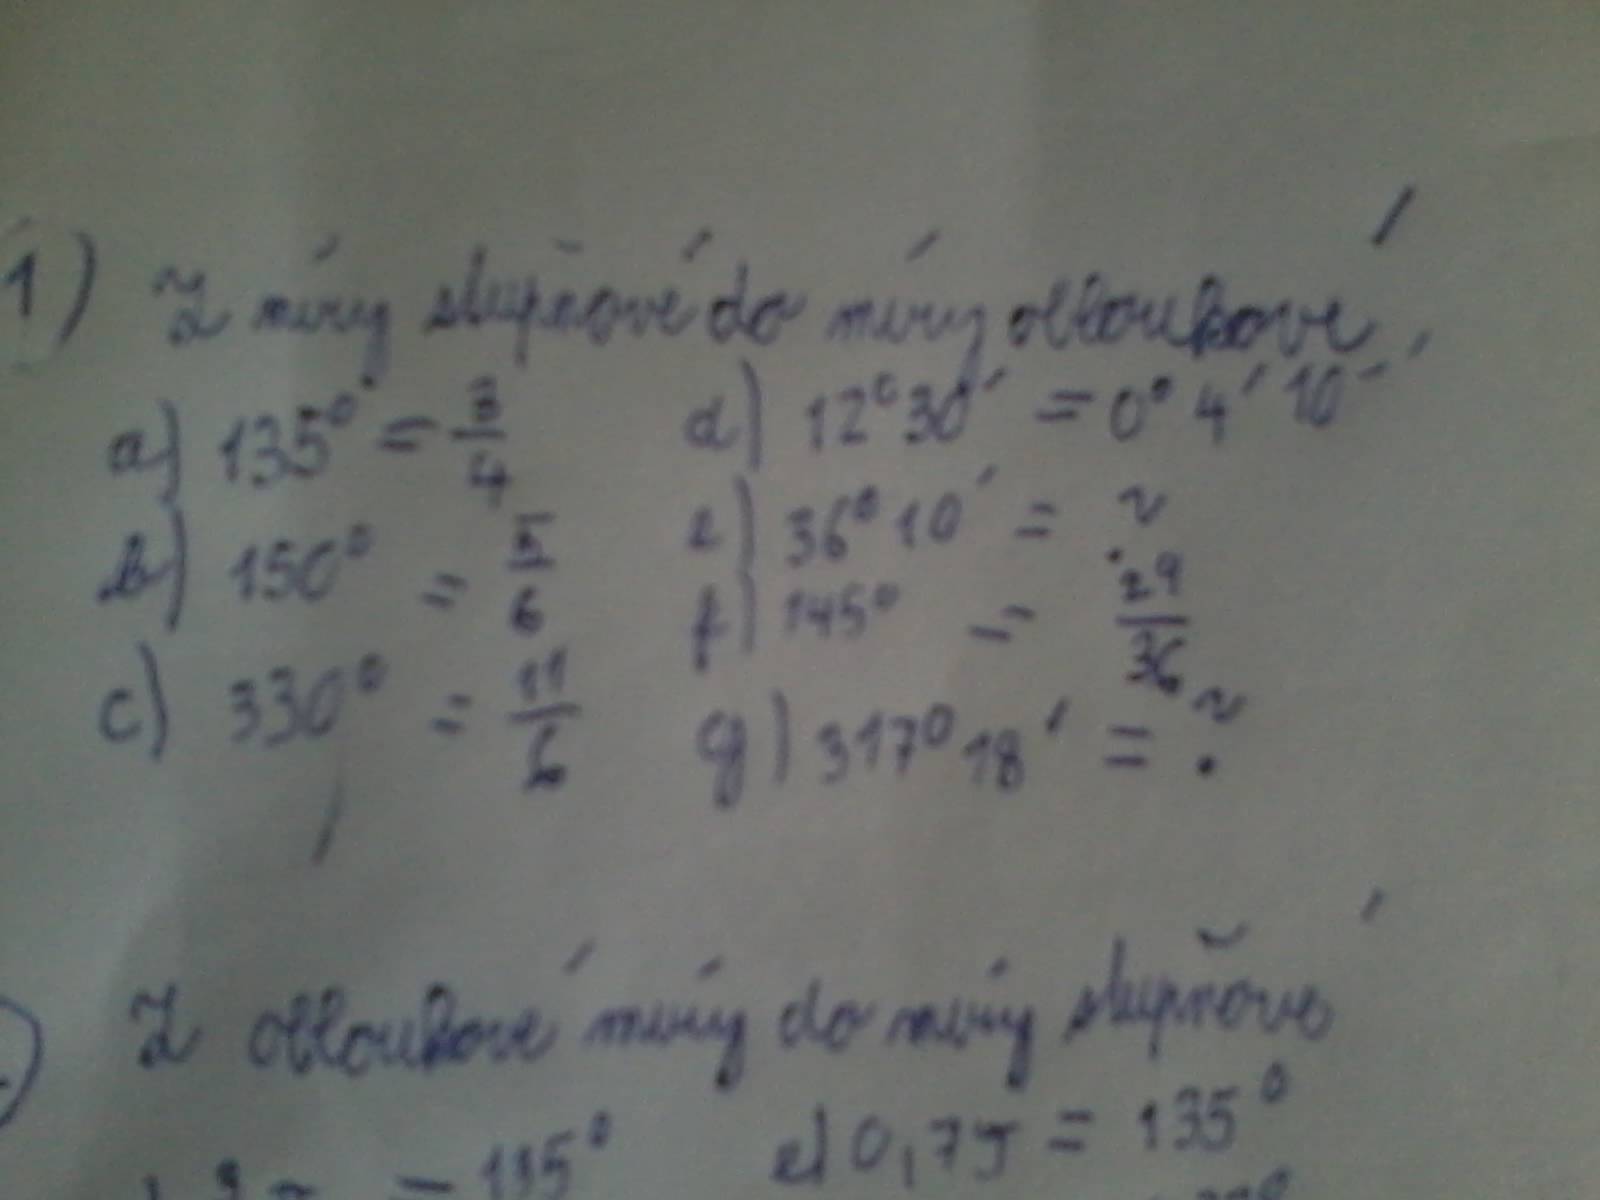 1) Z míry stupňové do míry obloukové
a) 135° = 3/4 d) 12°30' = 0° 4' 10''
b) 150° = 5/6 e) 36°10' = ?
c) 330° = 11/6 f) 145° = 29/36
g) 317°18' = ?
Z obloukové míry do míry stupňové
= 135° e) 0,75 = 135°